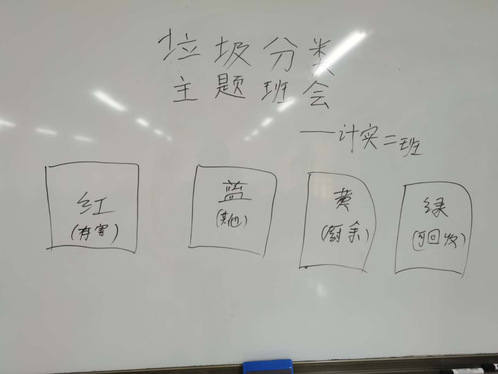 垃圾分类
主题班会
——计实二班
红
(有害)
蓝
(其他)
黄
(厨余)
绿
(可回收)